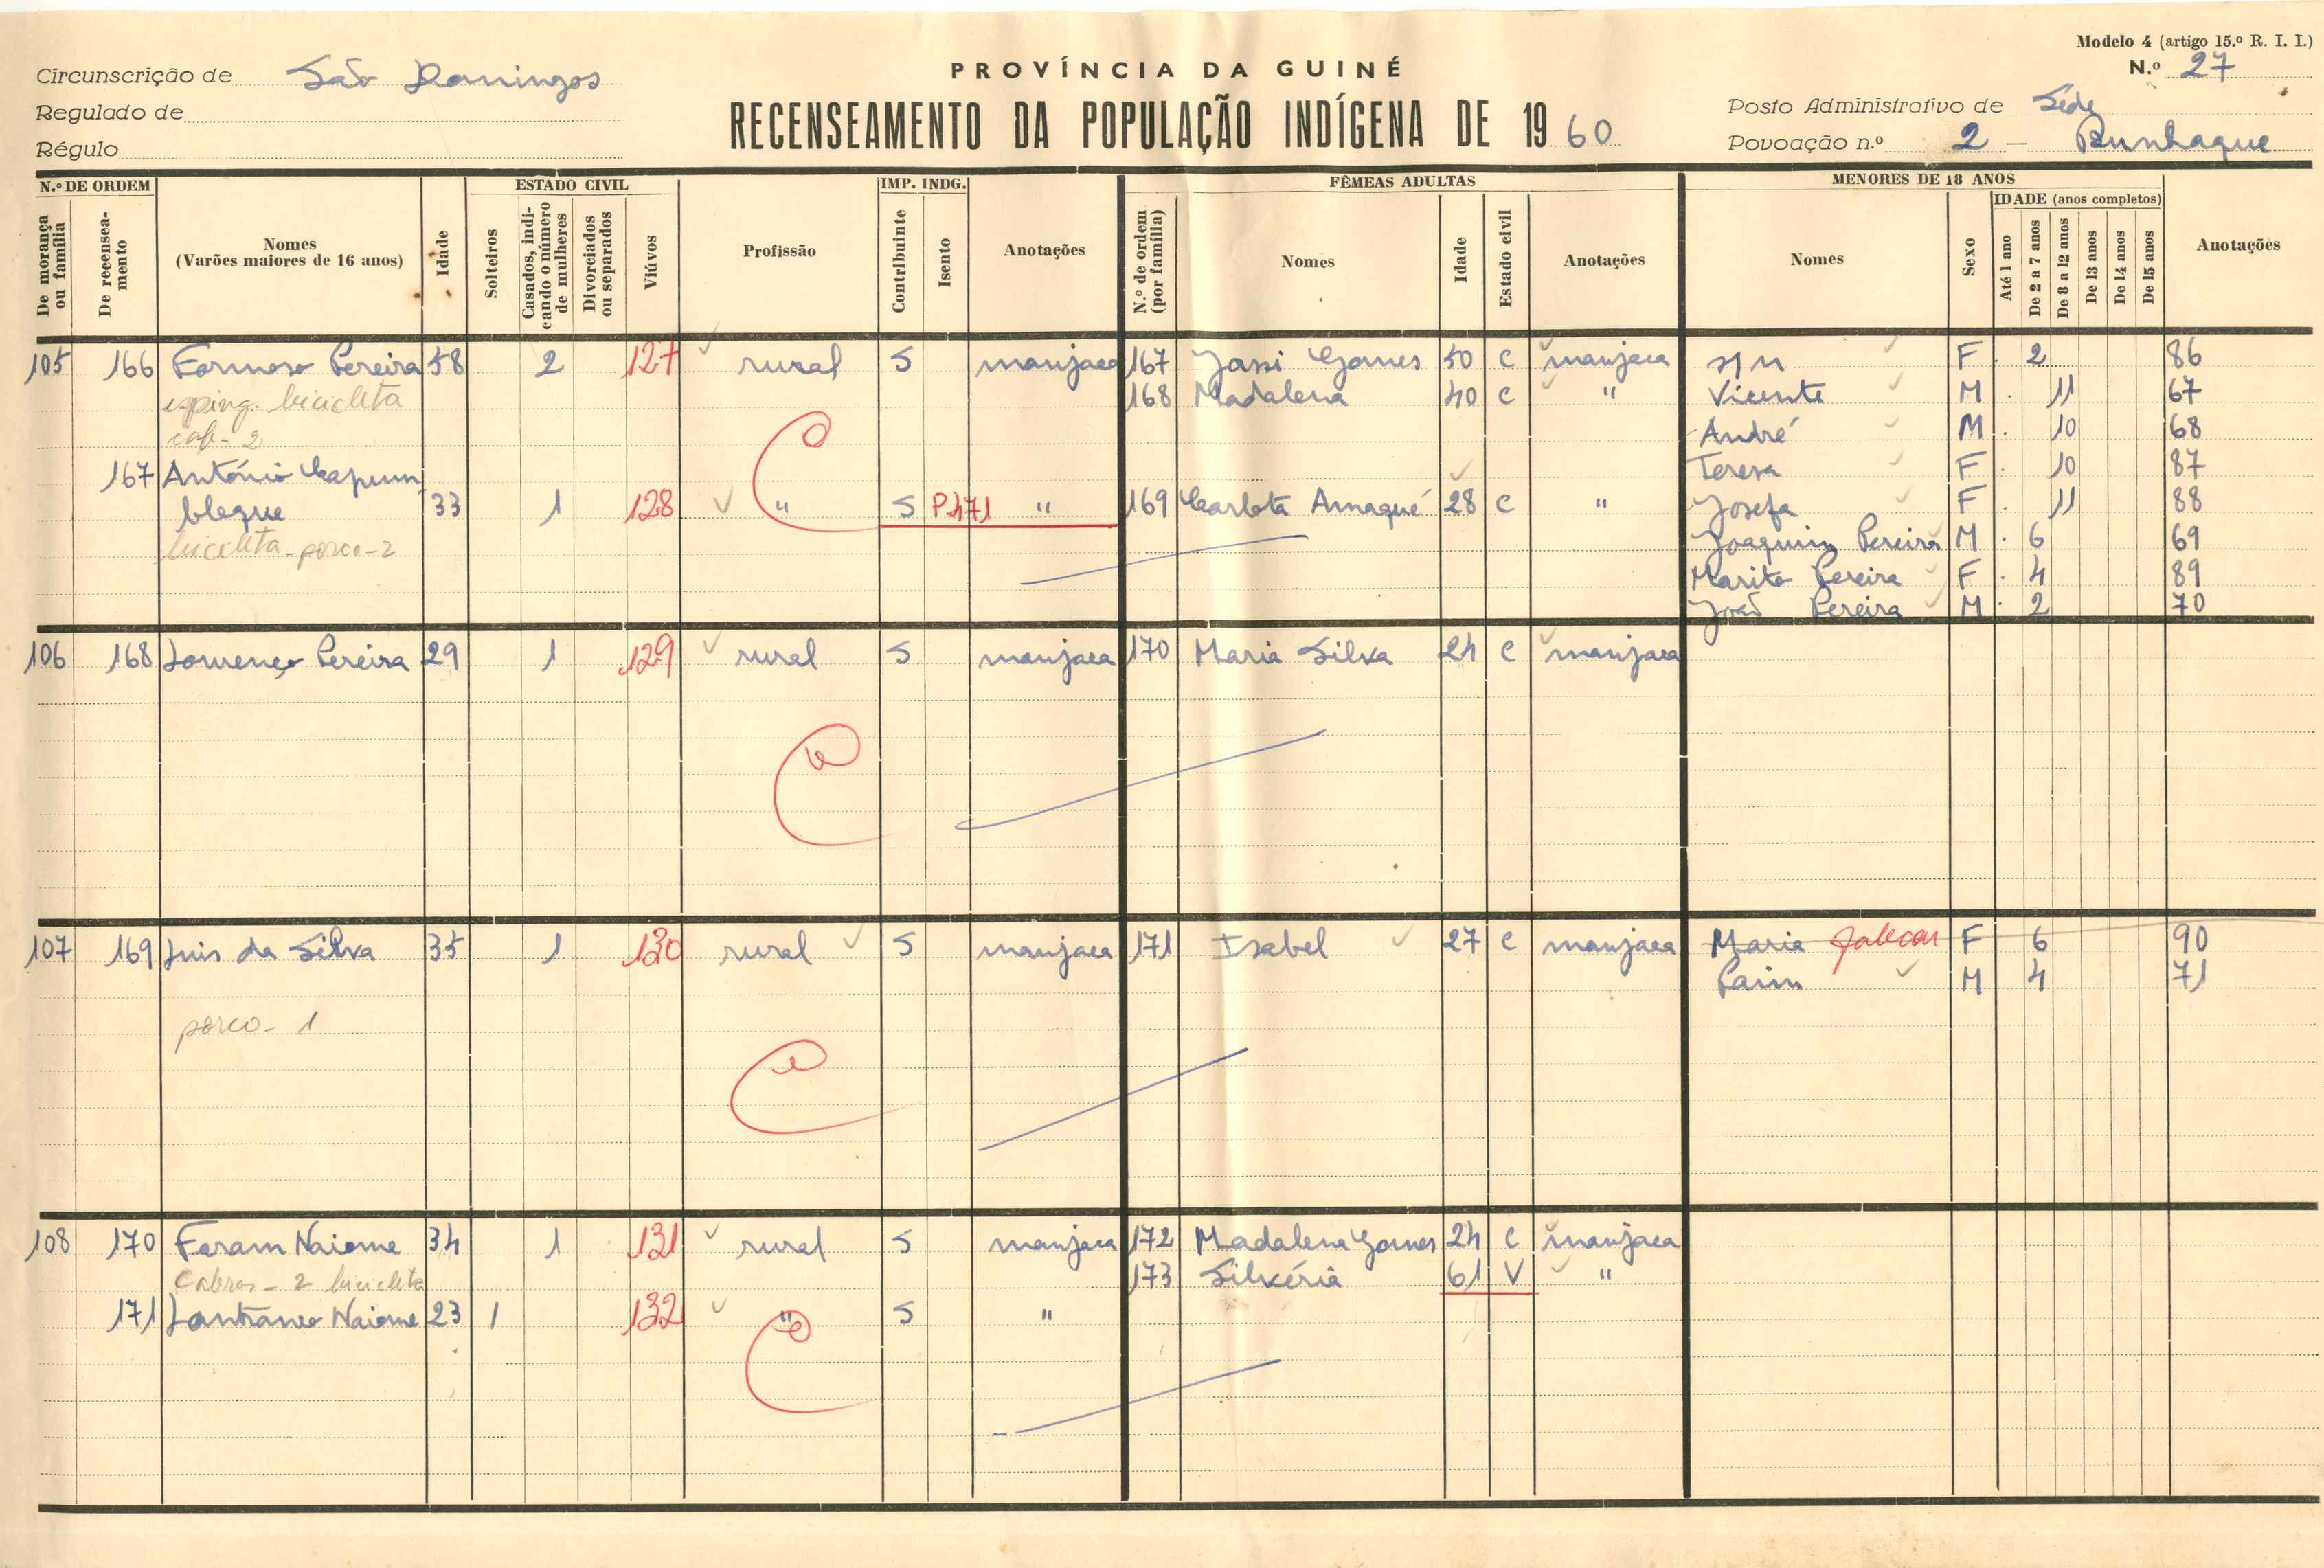 Modelo 4 (artigo 15.º R. I. I.)
PROVÍNCIA DA GUINÉ
N.º 27
Circunscrição de São Domingos
Regulado de
Régulo
RECENSEAMENTO DA POPULAÇÃO INDÍGENA DE 1960
Posto Administrativo de Séde
Povoação n.º 2 - Bunhaque
N.º DE ORDEM
De morança ou família
De recenseamento
Nomes
(Varões maiores de 16 anos)
Idade
ESTADO CIVIL
Solteiros
Casados, indicando o número de mulheres
Divorciados ou separados
Viúvos
Profissão
IMP. INDG.
Contribuinte
Isento
Anotações
FÊMEAS ADULTAS
N.º de ordem (por família)
Nomes
Idade
Estado civil
Anotações
MENORES DE 18 ANOS
Nomes
Sexo
IDADE (anos completos)
Até 1 ano
De 2 a 7 anos
De 8 a 12 anos
De 13 anos
De 14 anos
De 15 anos
Anotações
105 166 Formoso Pereira 58 2 127 rural S manjaca 167 Jassi Gomes 50 c manjaca s/n F 2 86
esping. bicicleta 168 Madalena 40 c " Vicente M 11 67
cab- 2 André M 10 68
167 António Teresa F 10 87
bleque 33 1 128 " S P.471 " 169 Carlota Amaqué 28 c " Josefa F 11 88
bicicleta - porco - 2 Joaquim Pereira M 6 69
Marita Pereira F 4 89
João Pereira M 2 70
106 168 Lourenço Pereira 29 1 129 rural S manjaca 170 Maria Silva 24 c manjaca
107 169 Luis da Silva 35 1 130 rural S manjaca 171 Isabel 27 c manjaca Maria faleceu F 6 90
Parim M 4 71
porco - 1
108 170 Faram Naiome 34 1 131 rural S manjaca 172 Madalena Gomes 24 c manjaca
Cabras - 2 bicicleta 173 Silvéria 61 V "
171 Naiome 23 1 132 " S "